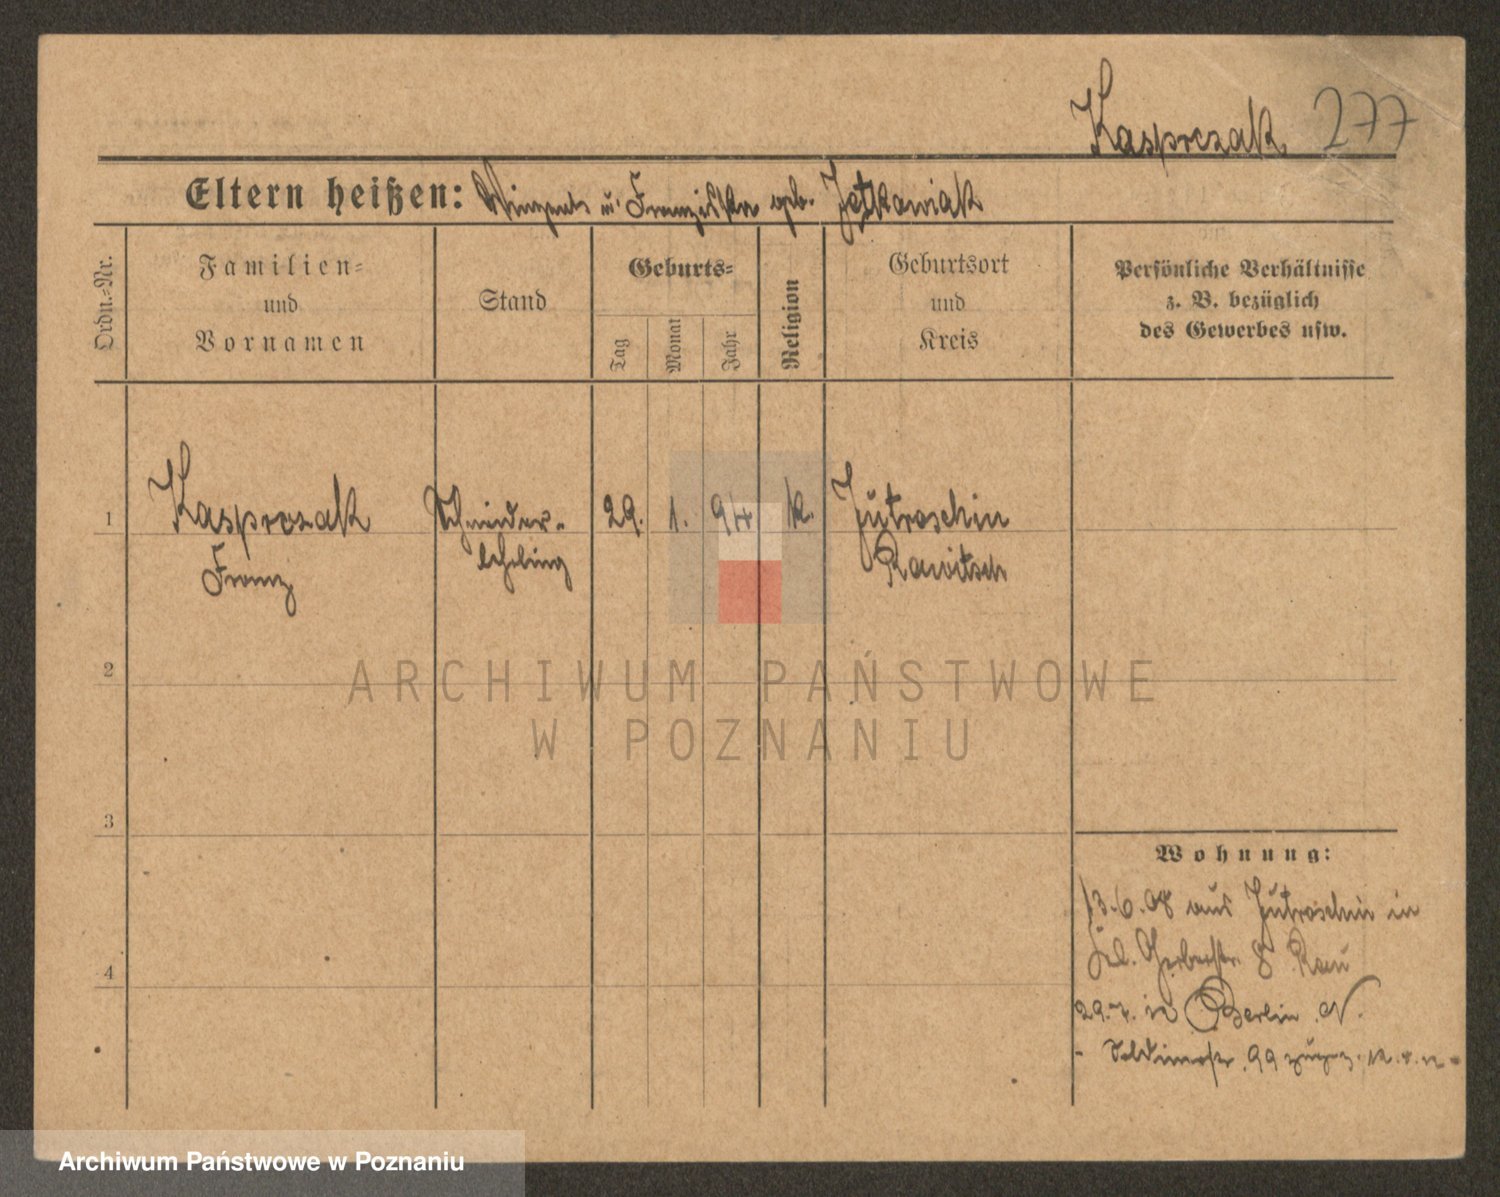 Kasprczak 277
Eltern heißen: Vinzents u. Franziska geb. Jetkowiak
Ordn.-Nr.
Familien-
und
Vornamen
Stand
Geburts-
Tag
Monat
Jahr
Religion
Geburtsort
und
Kreis
Persönliche Verhältnisse
z. B. bezüglich
des Gewerbes usw.
1 Kasprczak Schneider- 29. 1. 94 k. Jutroschin
Franz lehrling Rawitsch
2
ARCHIWUM PAŃSTWOWE
W POZNANIU
3
Wohnung:
13.6.08 aus Jutroschin in
Gerberstr. 8
4
29.7. in Berlin N.
99
Archiwum Państwowe w Poznaniu